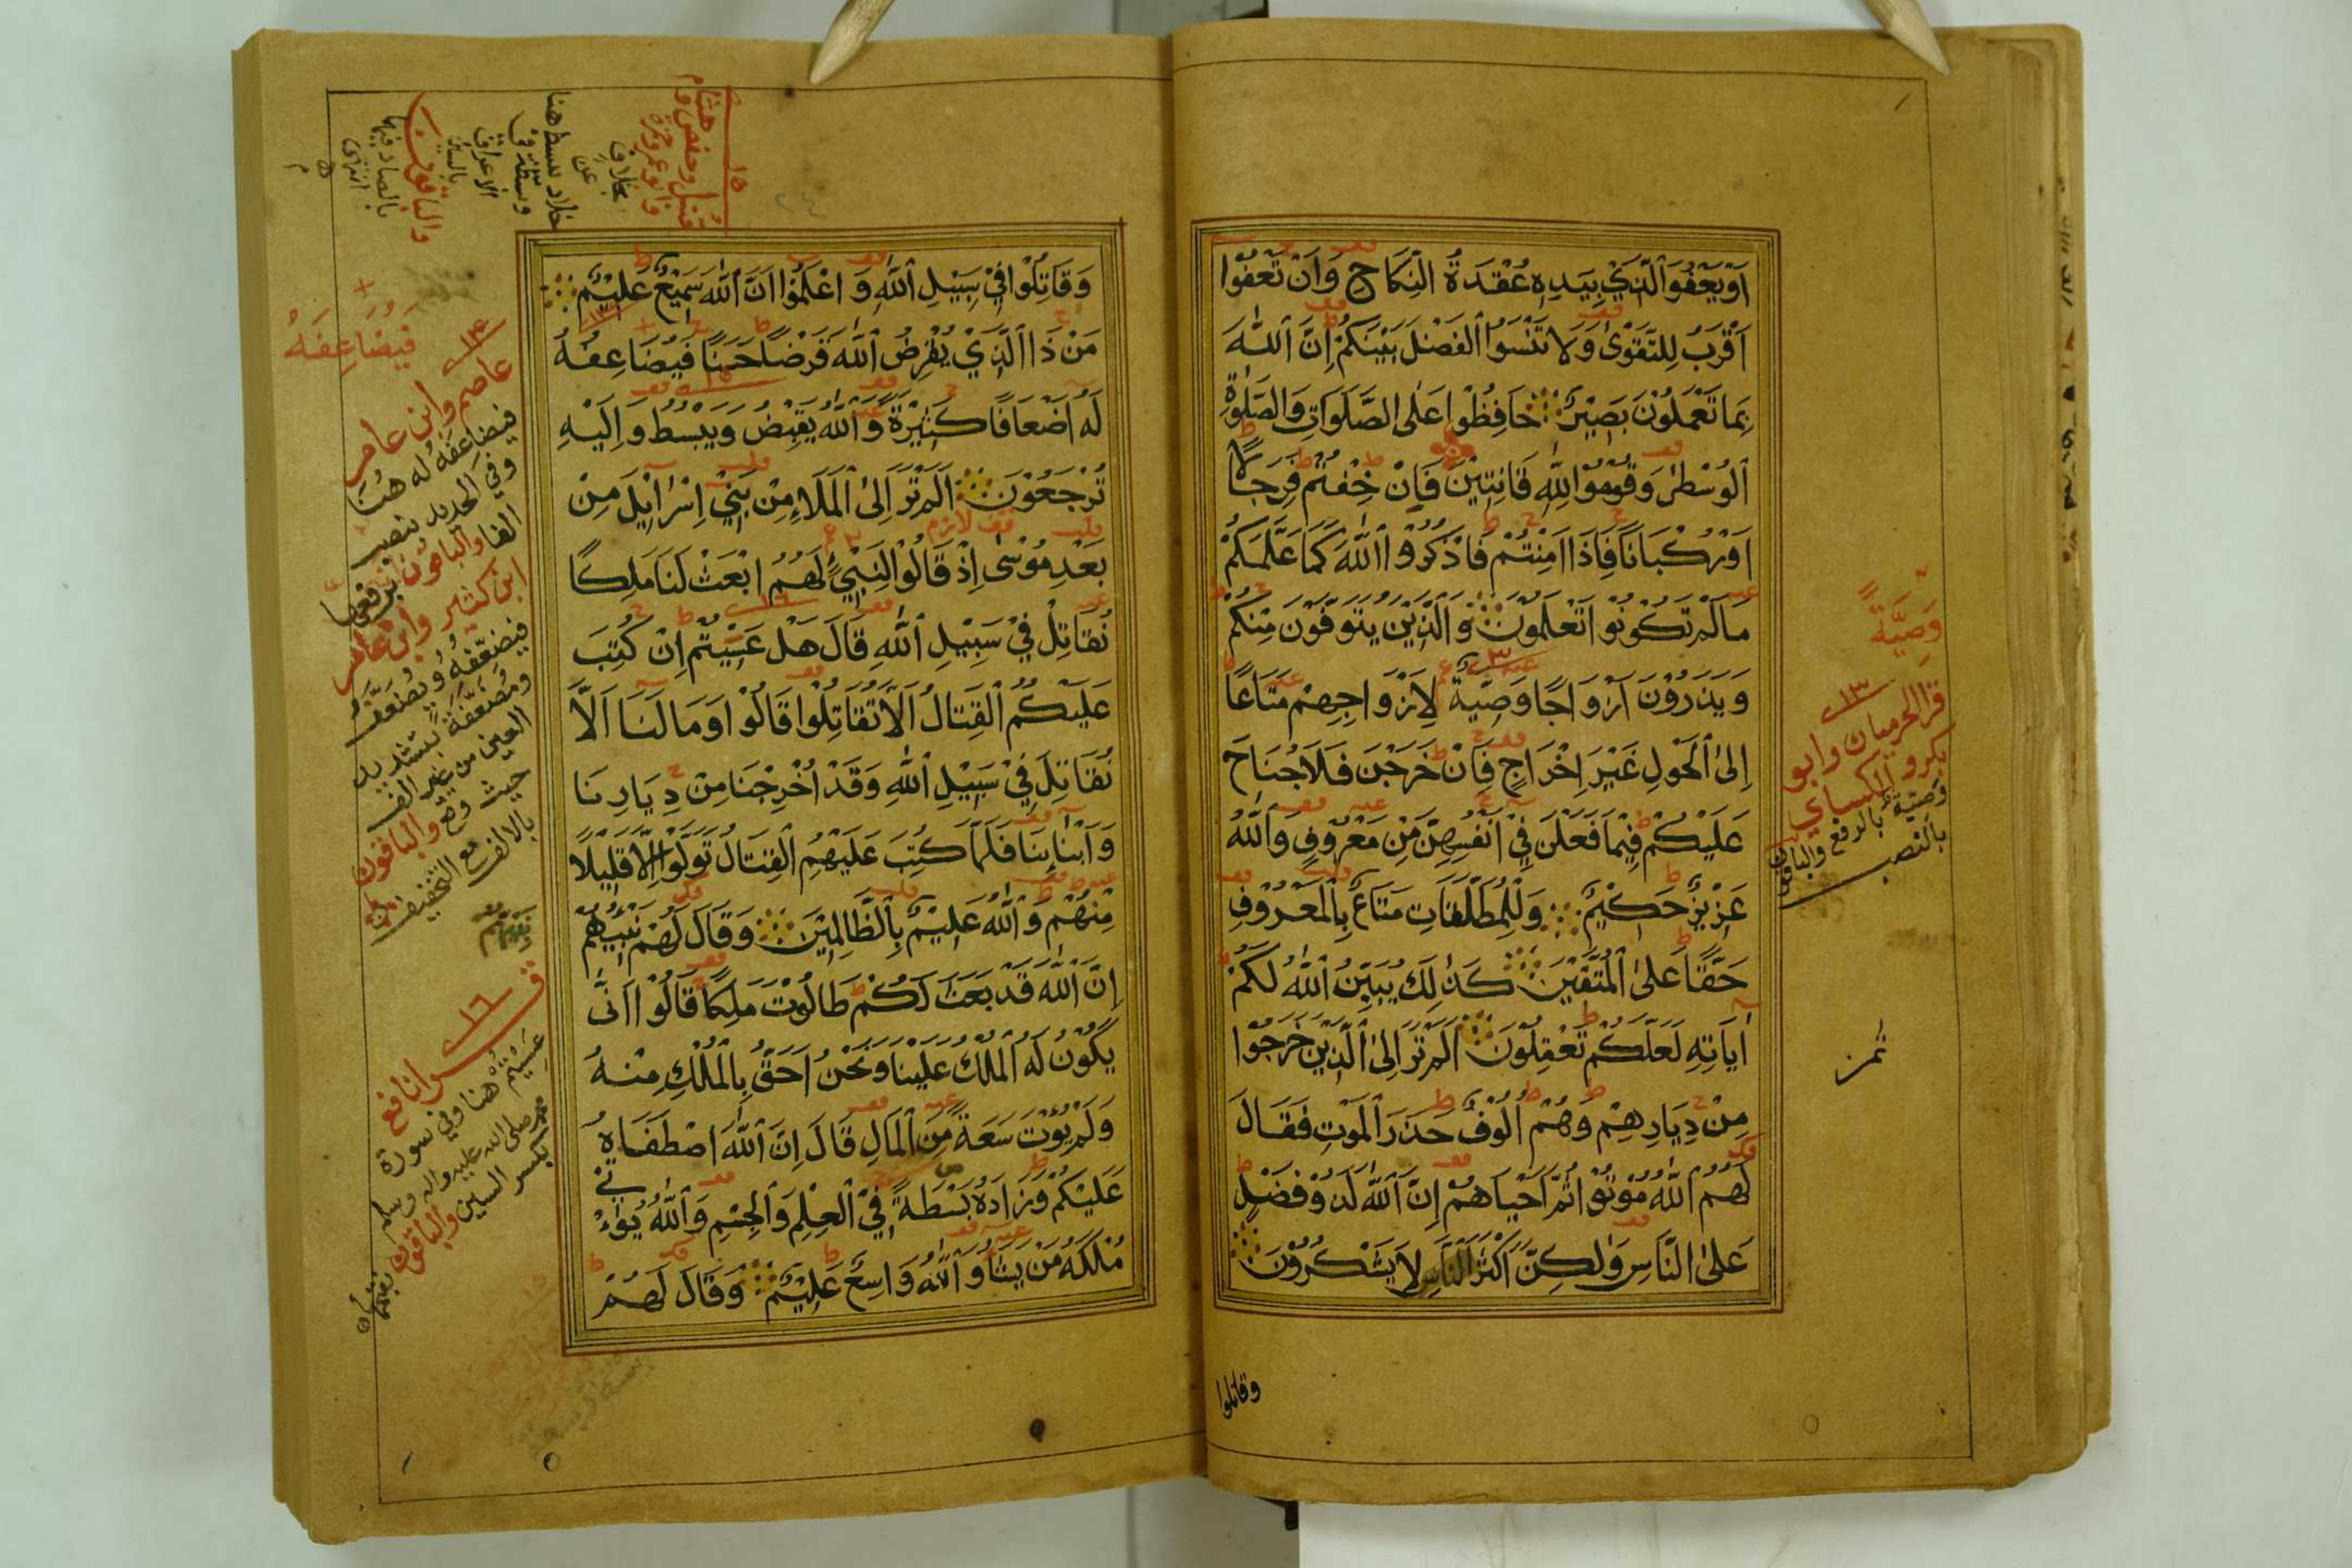 اَوْ يَعْفُوَا الَّذِيْ بِيَدِهٖ عُقْدَةُ النِّكَاحِ وَاَنْ تَعْفُوْا
اَقْرَبُ لِلتَّقْوٰى وَلَا تَنْسَوُا الْفَضْلَ بَيْنَكُمْ اِنَّ اللّٰهَ
بِمَا تَعْمَلُوْنَ بَصِيْرٌ حَافِظُوْا عَلَى الصَّلَوَاتِ وَالصَّلٰوةِ
الْوُسْطٰى وَقُوْمُوْا لِلّٰهِ قَانِتِيْنَ فَاِنْ خِفْتُمْ فَرِجَالًا
اَوْ رُكْبَانًا فَاِذَا اَمِنْتُمْ فَاذْكُرُوا اللّٰهَ كَمَا عَلَّمَكُمْ
مَا لَمْ تَكُوْنُوْا تَعْلَمُوْنَ وَالَّذِيْنَ يُتَوَفَّوْنَ مِنْكُمْ
وَيَذَرُوْنَ اَزْوَاجًا وَصِيَّةً لِاَزْوَاجِهِمْ مَتَاعًا
اِلَى الْحَوْلِ غَيْرَ اِخْرَاجٍ فَاِنْ خَرَجْنَ فَلَا جُنَاحَ
عَلَيْكُمْ فِيْمَا فَعَلْنَ فِيْ اَنْفُسِهِنَّ مِنْ مَعْرُوْفٍ وَاللّٰهُ
عَزِيْزٌ حَكِيْمٌ وَلِلْمُطَلَّقَاتِ مَتَاعٌ بِالْمَعْرُوْفِ
حَقًّا عَلَى الْمُتَّقِيْنَ كَذٰلِكَ يُبَيِّنُ اللّٰهُ لَكُمْ
اٰيَاتِهٖ لَعَلَّكُمْ تَعْقِلُوْنَ اَلَمْ تَرَ اِلَى الَّذِيْنَ خَرَجُوْا
مِنْ دِيَارِهِمْ وَهُمْ اُلُوْفٌ حَذَرَ الْمَوْتِ فَقَالَ
لَهُمُ اللّٰهُ مُوْتُوْا ثُمَّ اَحْيَاهُمْ اِنَّ اللّٰهَ لَذُوْ فَضْلٍ
عَلَى النَّاسِ وَلٰكِنَّ اَكْثَرَ النَّاسِ لَا يَشْكُرُوْنَ
وقاتلوا
وَصِيَّةٌ
١٣
قرا الحرميان وابو
بكر والكسائي
وصية بالرفع والباقون
بالنصب
ثمن
وَقَاتِلُوْا فِيْ سَبِيْلِ اللّٰهِ وَاعْلَمُوْا اَنَّ اللّٰهَ سَمِيْعٌ عَلِيْمٌ
مَنْ ذَا الَّذِيْ يُقْرِضُ اللّٰهَ قَرْضًا حَسَنًا فَيُضَاعِفُهُ
لَهُ اَضْعَافًا كَثِيْرَةً وَاللّٰهُ يَقْبِضُ وَيَبْسُطُ وَاِلَيْهِ
تُرْجَعُوْنَ اَلَمْ تَرَ اِلَى الْمَلَاءِ مِنْ بَنِيْ اِسْرَائِيْلَ مِنْ
بَعْدِ مُوْسٰى اِذْ قَالُوْا لِنَبِيٍّ لَهُمُ ابْعَثْ لَنَا مَلِكًا
نُقَاتِلْ فِيْ سَبِيْلِ اللّٰهِ قَالَ هَلْ عَسَيْتُمْ اِنْ كُتِبَ
عَلَيْكُمُ الْقِتَالُ اَلَّا تُقَاتِلُوْا قَالُوْا وَمَا لَنَا اَلَّا
نُقَاتِلَ فِيْ سَبِيْلِ اللّٰهِ وَقَدْ اُخْرِجْنَا مِنْ دِيَارِنَا
وَاَبْنَائِنَا فَلَمَّا كُتِبَ عَلَيْهِمُ الْقِتَالُ تَوَلَّوْا اِلَّا قَلِيْلًا
مِنْهُمْ وَاللّٰهُ عَلِيْمٌ بِالظَّالِمِيْنَ وَقَالَ لَهُمْ نَبِيُّهُمْ
اِنَّ اللّٰهَ قَدْ بَعَثَ لَكُمْ طَالُوْتَ مَلِكًا قَالُوْا اَنّٰى
يَكُوْنُ لَهُ الْمُلْكُ عَلَيْنَا وَنَحْنُ اَحَقُّ بِالْمُلْكِ مِنْهُ
وَلَمْ يُؤْتَ سَعَةً مِنَ الْمَالِ قَالَ اِنَّ اللّٰهَ اصْطَفَاهُ
عَلَيْكُمْ وَزَادَهُ بَسْطَةً فِي الْعِلْمِ وَالْجِسْمِ وَاللّٰهُ يُؤْتِيْ
مُلْكَهُ مَنْ يَشَاءُ وَاللّٰهُ وَاسِعٌ عَلِيْمٌ وَقَالَ لَهُمْ
١٥
قنبل وحفص وهشام
وابو عمرو وحمزة
بخلاف
عن
خلاد يبسط هنا
وبسطة في
الاعراف
بالسين
والباقون
بالصاد فيهما
انتهى
فَيُضَاعِفَهُ
١٤
عاصم وابن عامر
فيضاعفه له هنا
وفي الحديد بنصب
الفا والباقون برفعها
ابن كثير وابن عامر
فيضعفه ويضعف
ومضعفة بتشديد
العين من غير الف
حيث وقع والباقون
بالالف مع التخفيف
١٦
قرا نافع
عسيتم هنا وفي سورة
محمد صلى الله عليه واله وسلم
بكسر السين والباقون
بفتحها